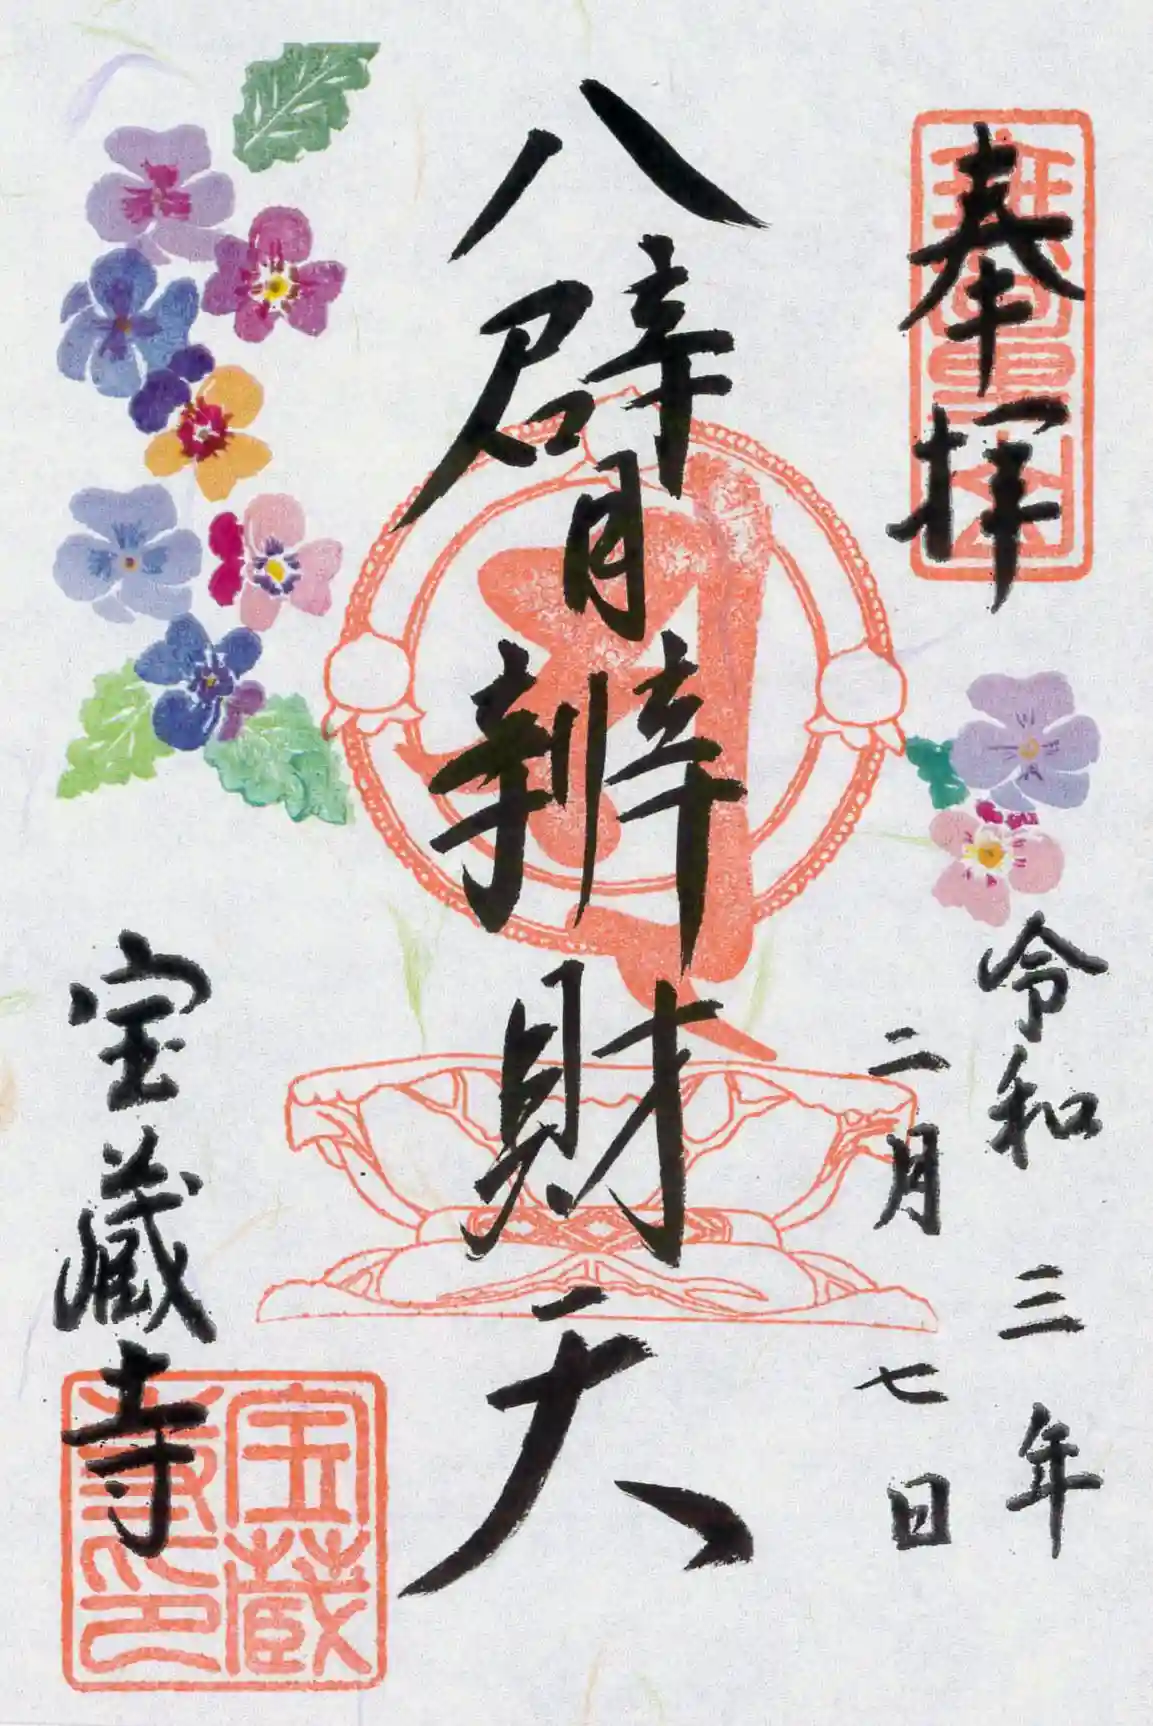 奉拝
令和三年
二月七日
八臂辨財天
宝蔵寺
宝蔵
寺印